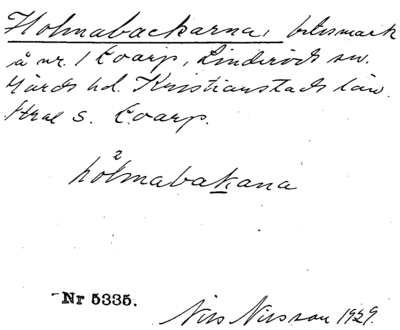 Holmabackarna, betesmark
å nr. 1 Toarp, Linderöds sn.
Gärds hd. Kristianstads län.
Hral S. Toarp.
2
hölmabakana
Nr 5335.
Nils Nilsson 1929.